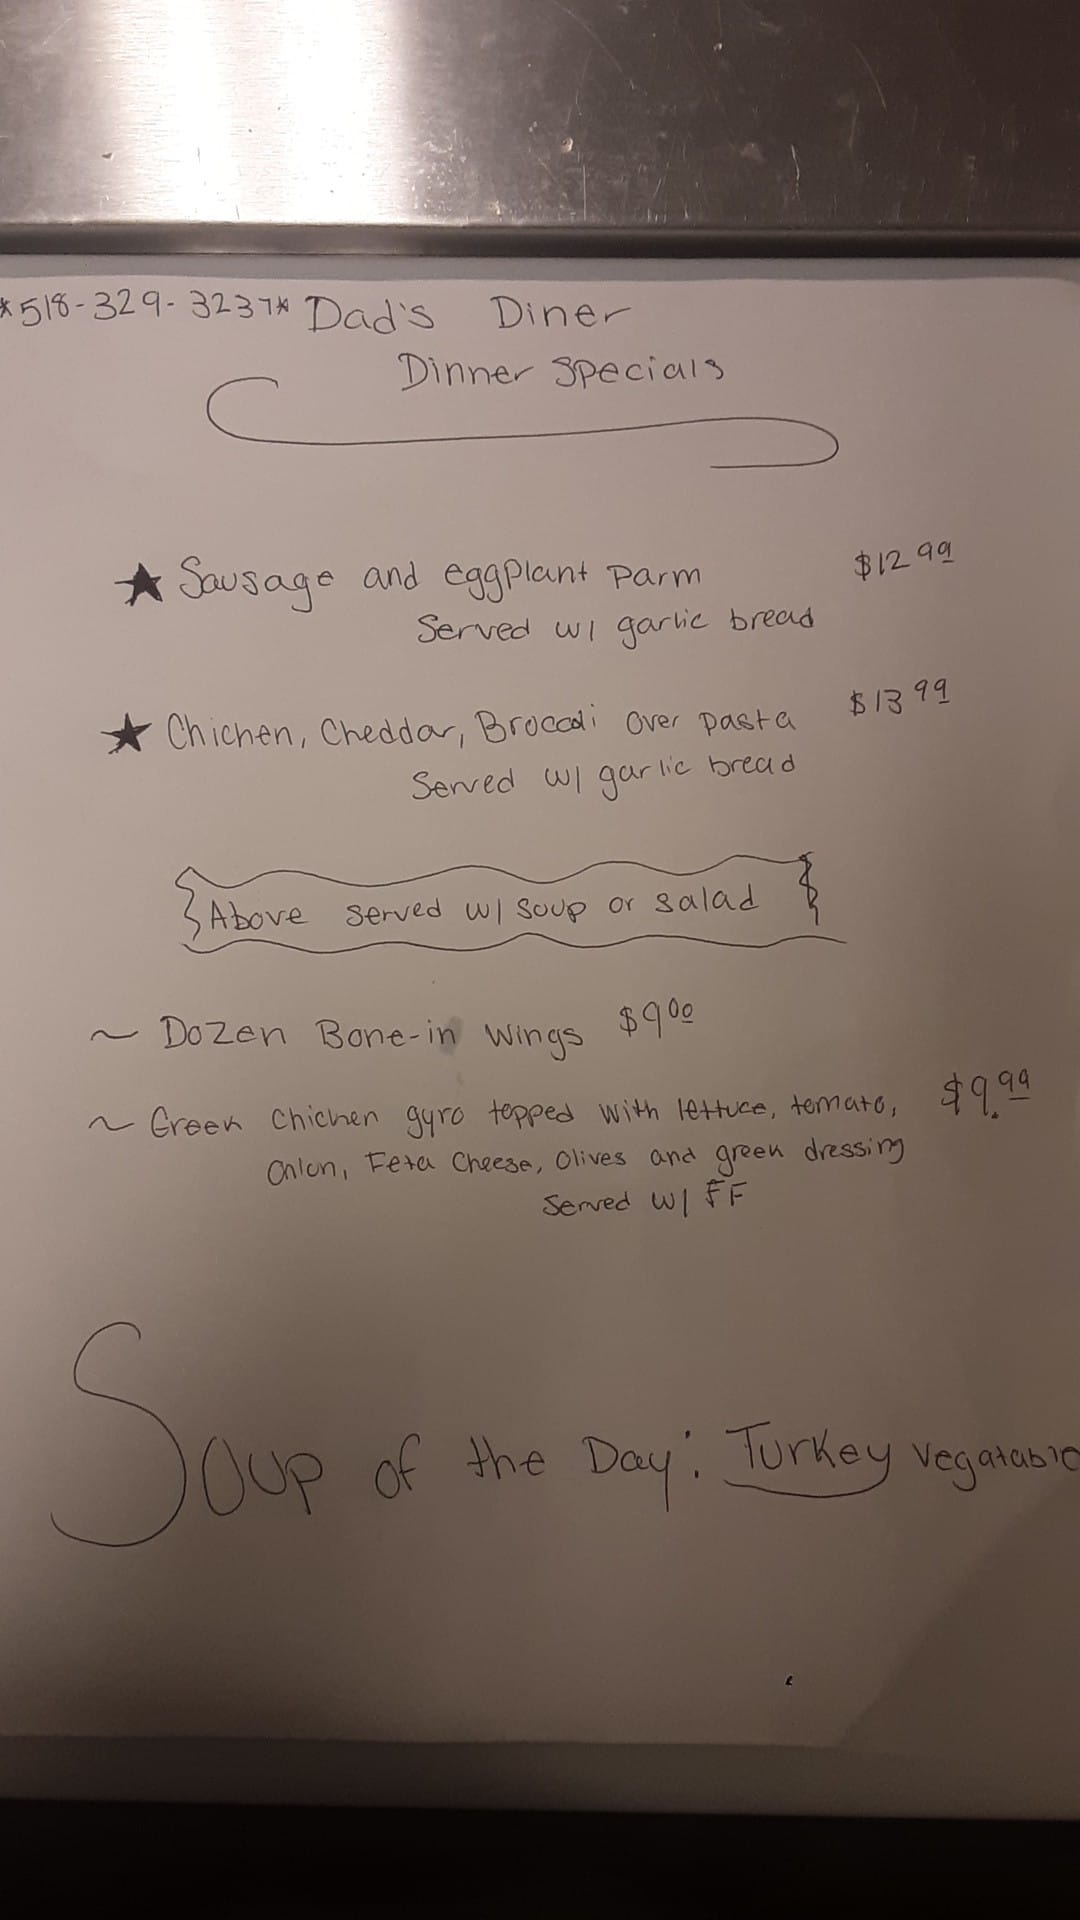 *518-329-3237* Dad's Diner
Dinner Specials
★ Sausage and eggplant Parm $12.99
Served w/ garlic bread
★ Chicken, Cheddar, Broccoli over pasta $13.99
Served w/ garlic bread
Above served w/ soup or salad
~ Dozen Bone-in wings $9.00
~ Greek Chicken gyro topped with lettuce, tomato, $9.99
Onion, Feta Cheese, Olives and greek dressing
Served w/ FF
Soup of the Day: Turkey vegatable